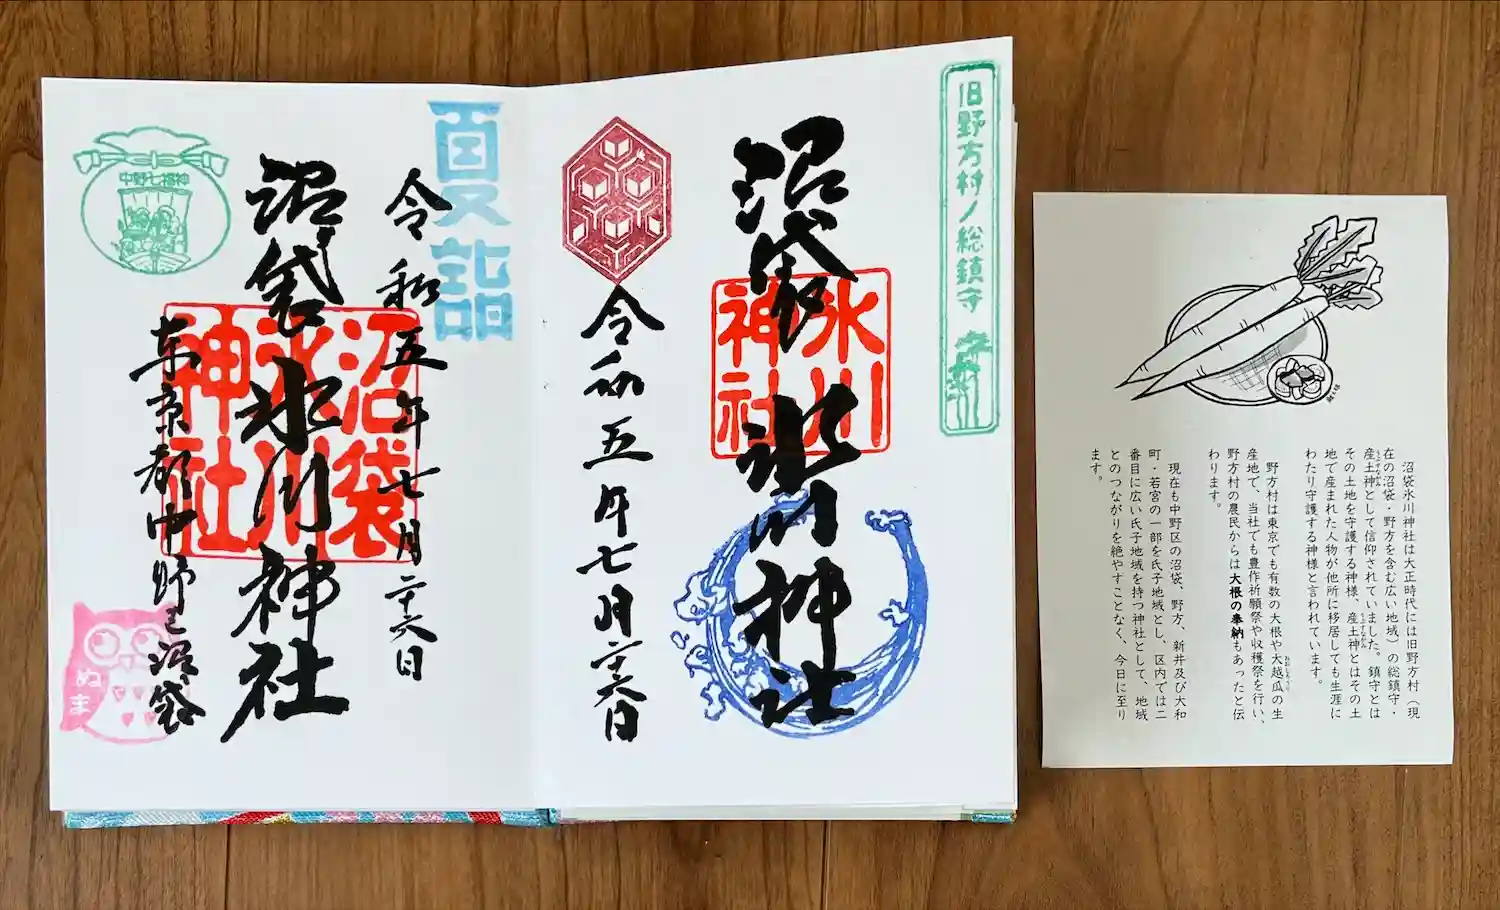 旧野方村ノ総鎮守
沼袋氷川神社
氷川
神社
令和五年七月二十六日
夏詣
令和五年七月二十六日
沼袋氷川神社
沼袋
氷川
神社
東京都中野区沼袋
中野七福神
ぬま
沼袋氷川神社は大正時代には旧野方村（現
在の沼袋・野方を含む広い地域）の総鎮守・
産土神として信仰されていました。鎮守とは
その土地を守護する神様、産土神とはその土
地で産まれた人物が他所に移居しても生涯に
わたり守護する神様と言われています。
野方村は東京でも有数の大根や大越瓜の生
産地で、当社でも豊作祈願祭や収穫祭を行い、
野方村の農民からは大根の奉納もあったと伝
わります。
現在も中野区の沼袋、野方、新井及び大和
町・若宮の一部を氏子地域とし、区内では二
番目に広い氏子地域を持つ神社として、地域
とのつながりを絶やすことなく、今日に至り
ます。